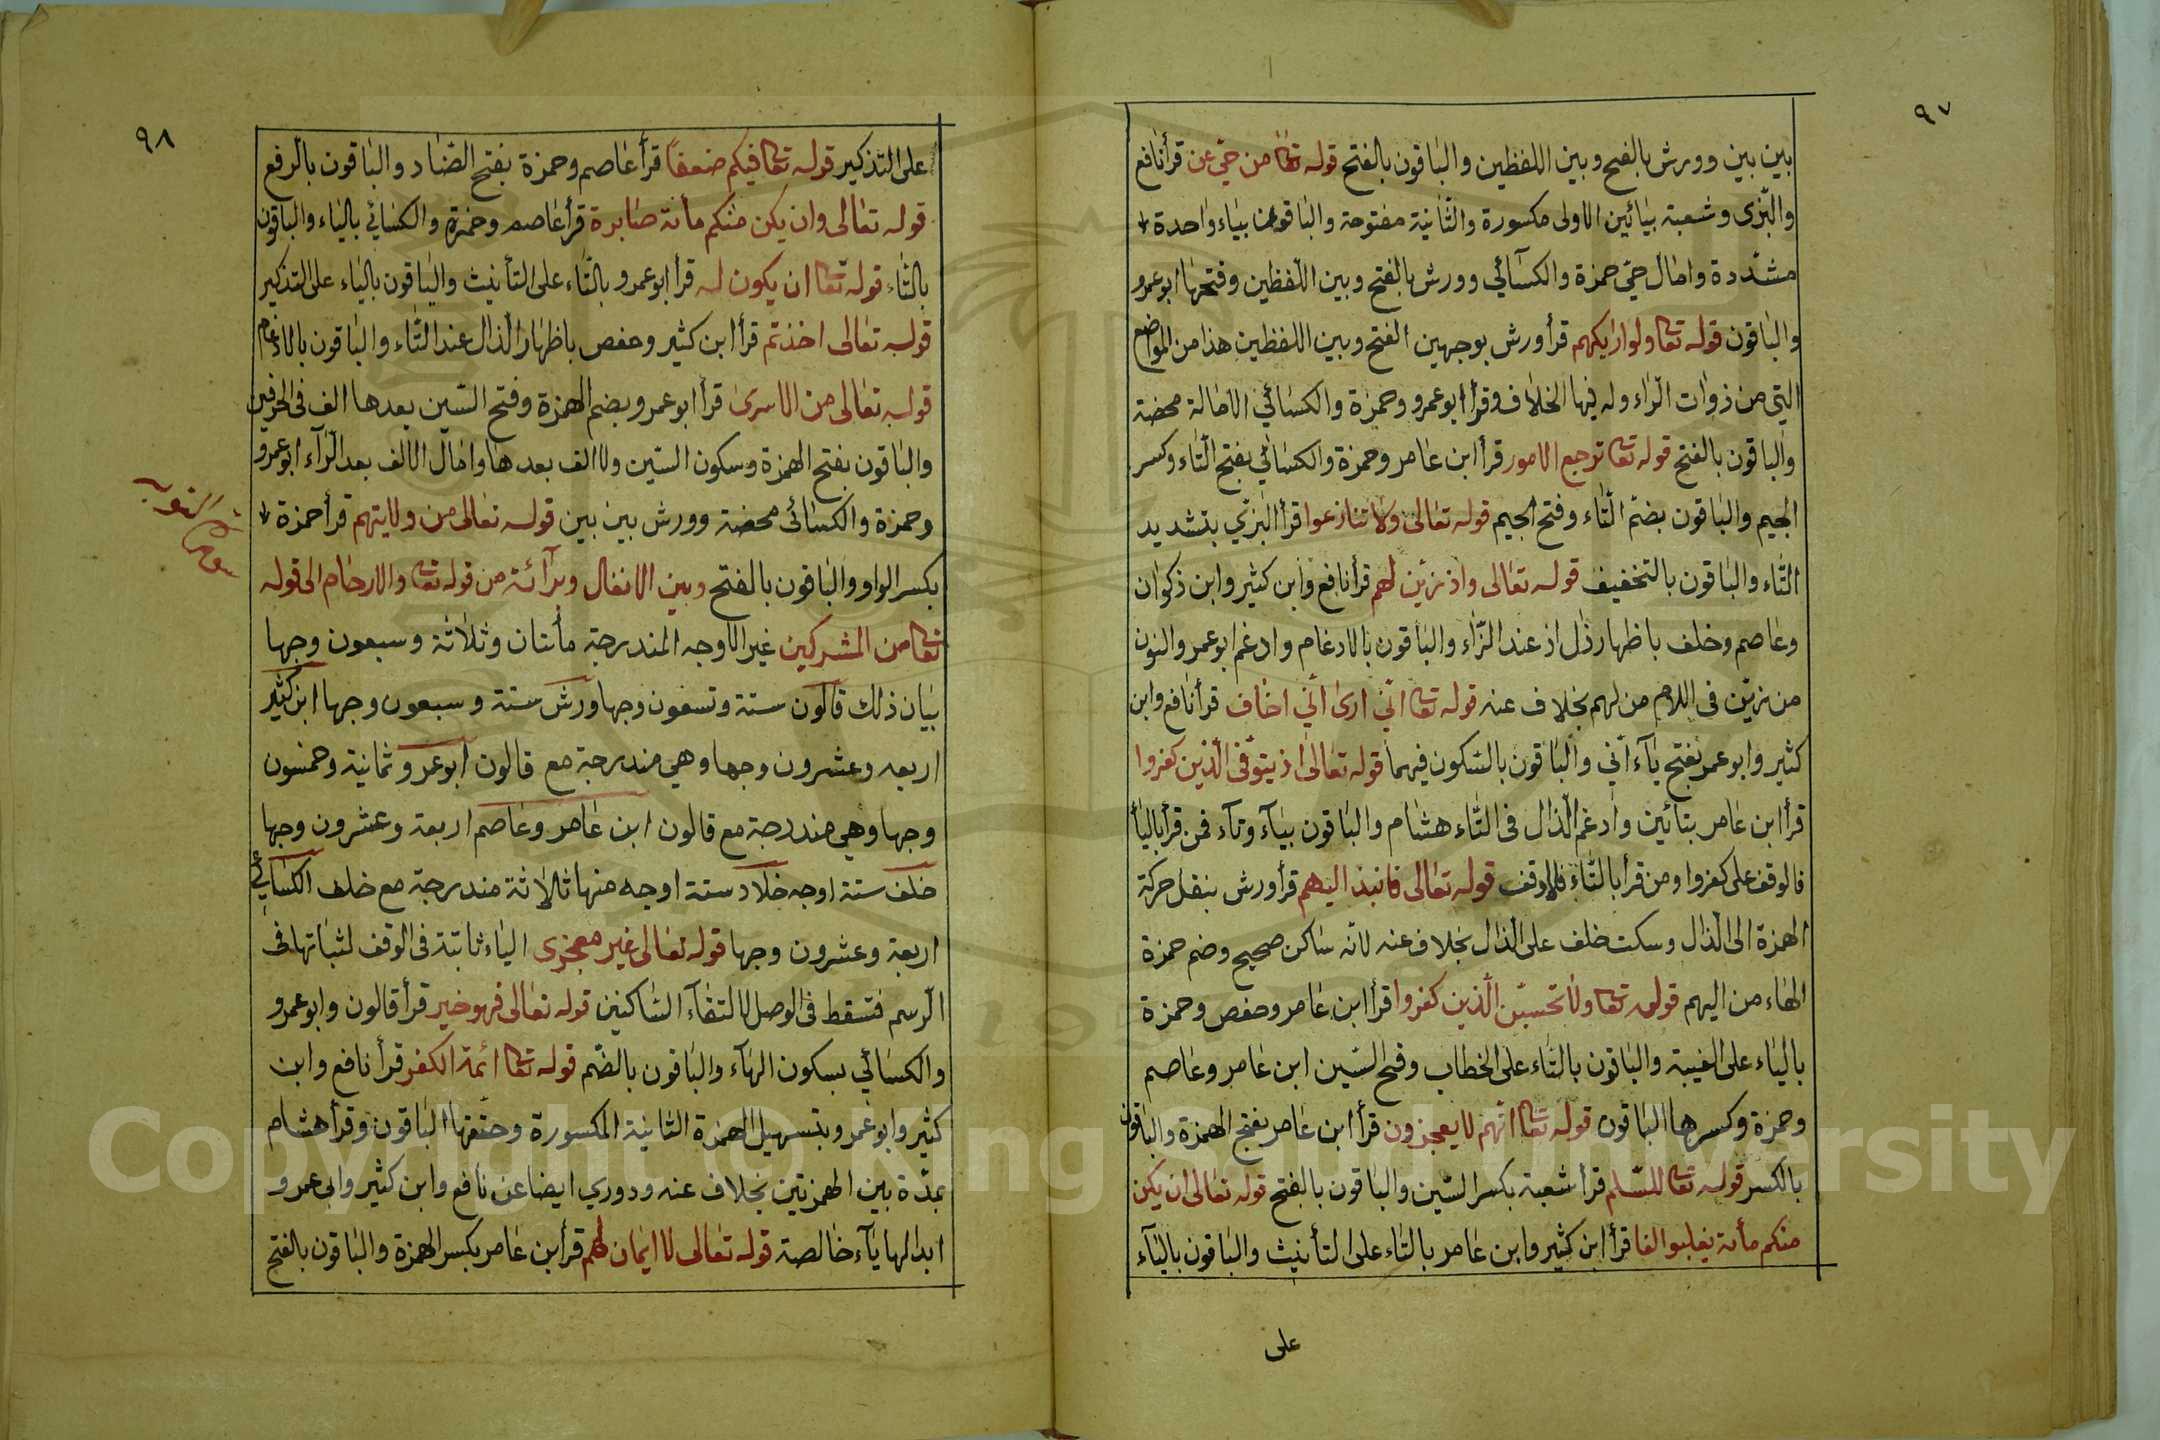 ٩٧
بين بين وورش بالفتح وبين اللفظين والباقون بالفتح قوله تعا من حيّ عن قرأ نافع
والبزى وشعبة بيائين الاولى مكسورة والثانية مفتوحة والباقون بياء واحدة
مشددة وامال حيّ حمزة والكسائي وورش بالفتح وبين اللفظين وفتحها ابوعمرو
والباقون قوله تعا ولو اريكهم قرأ ورش بوجهين الفتح وبين اللفظين هذا من المواضع
التي من ذوات الراء وله فيها الخلاف وقرأ ابوعمرو وحمزة والكسائي الامالة محضة
والباقون بالفتح قوله تعا ترجع الامور قرأ ابن عامر وحمزة والكسائي بفتح التاء وكسر
الجيم والباقون بضم التاء وفتح الجيم قوله تعالى ولا تنازعوا قرأ البزي بتشديد
التاء والباقون بالتخفيف قوله تعالى واذ زين لهم قرأ نافع وابن كثير وابن ذكوان
وعاصم وخلف باظهار ذل اذ عند الزاء والباقون بالادغام وادغم ابوعمرو النون
من زين في اللام من لهم بخلاف عنه قوله تعا انّي ارى انّي اخاف قرأ نافع وابن
كثير وابوعمر بفتح يآء انّي والباقون بالسكون فيهما قوله تعالى اذ يتوفى الذين كفروا
قرأ ابن عامر بتائين وادغم الذال في التاء هشام والباقون بيآء وتآء فمن قرأ باليأ
فالوقف على كفروا ومن قرأ بالتاء فلا وقف قوله تعالى فانبذ اليهم قرأ ورش بنقل حركة
الهمزة الى الذال وسكت خلف على الذال بخلاف عنه لانه ساكن صحيح وضم حمزة
الهاء من اليهم قوله تعا ولا تحسبن الذين كفروا قرأ ابن عامر وحفص وحمزة
بالياء على الغيبة والباقون بالتاء على الخطاب وفتح السين ابن عامر وعاصم
وحمزة وكسرها الباقون قوله تعا انهم لا يعجزون قرأ ابن عامر بفتح الهمزة والباقون
بالكسر قوله تعا للسلم قرأ شعبة بكسر السين والباقون بالفتح قوله تعالى ان يكن
منكم مأئة يغلبوا الفا قرأ ابن كثير وابن عامر بالتاء على التأنيث والباقون باليآء
على
٩٨
على التذكير قوله تعا فيكم ضعفاً قرأ عاصم وحمزة بفتح الضاد والباقون بالرفع
قوله تعالى وان يكن منكم مائة صابرة قرأ عاصم وحمزة والكسائي بالياء والباقون
بالتاء قوله تعا ان يكون له قرأ ابوعمرو بالتاء على التأنيث والباقون بالياء على التذكير
قوله تعالى اخذتم قرأ ابن كثير وحفص باظهار الذال عند التاء والباقون بالادغام
قوله تعالى من الاسرى قرأ ابوعمرو بضم الهمزة وفتح السين بعدها الف في الحرفين
والباقون بفتح الهمزة وسكون السين ولا الف بعدها وامال الالف بعد الرآء ابوعمرو
وحمزة والكسائى محضة وورش بين بين قوله تعالى من ولايتهم قرأ حمزة
بكسر الواو والباقون بالفتح وبين الانفال وبرآئة من قوله تعا والارحام الى قوله
تعا من المشركين غير الاوجه المندرجة مأتان وثلاثة وسبعون وجها
بيان ذلك قالون ستة وتسعون وجها ورش ستة وسبعون وجها ابن كثير
اربعه وعشرون وجها وهي مندرجة مع قالون ابوعمرو ثمانية وخمسون
وجها وهي مندرجة مع قالون ابن عامر وعاصم اربعة وعشرون وجها
خلف ستة اوجه خلاد ستة اوجه منها ثلاثة مندرجة مع خلف الكسائي
اربعة وعشرون وجها قوله تعالى غير معجزي الياء ثابتة في الوقف لثباتها في
الرسم فتسقط في الوصل لالتقآء الساكنين قوله تعالى فهو خير قرأ قالون وابوعمرو
والكسائي بسكون الهآء والباقون بالضم قوله تعا ائمة الكفر قرأ نافع وابن
كثير وابوعمرو بتسهيل الهمزة الثانية المكسورة وحققها الباقون وقرأ هشام
بمدة بين الهمزتين بخلاف عنه ودوري ايضا عن نافع وابن كثير وابى عمرو
ابدالها يآء خالصة قوله تعالى لا ايمان لهم قرأ ابن عامر بكسر الهمزة والباقون بالفتح
سورة التوبه
Copyright © King Saud University
1957